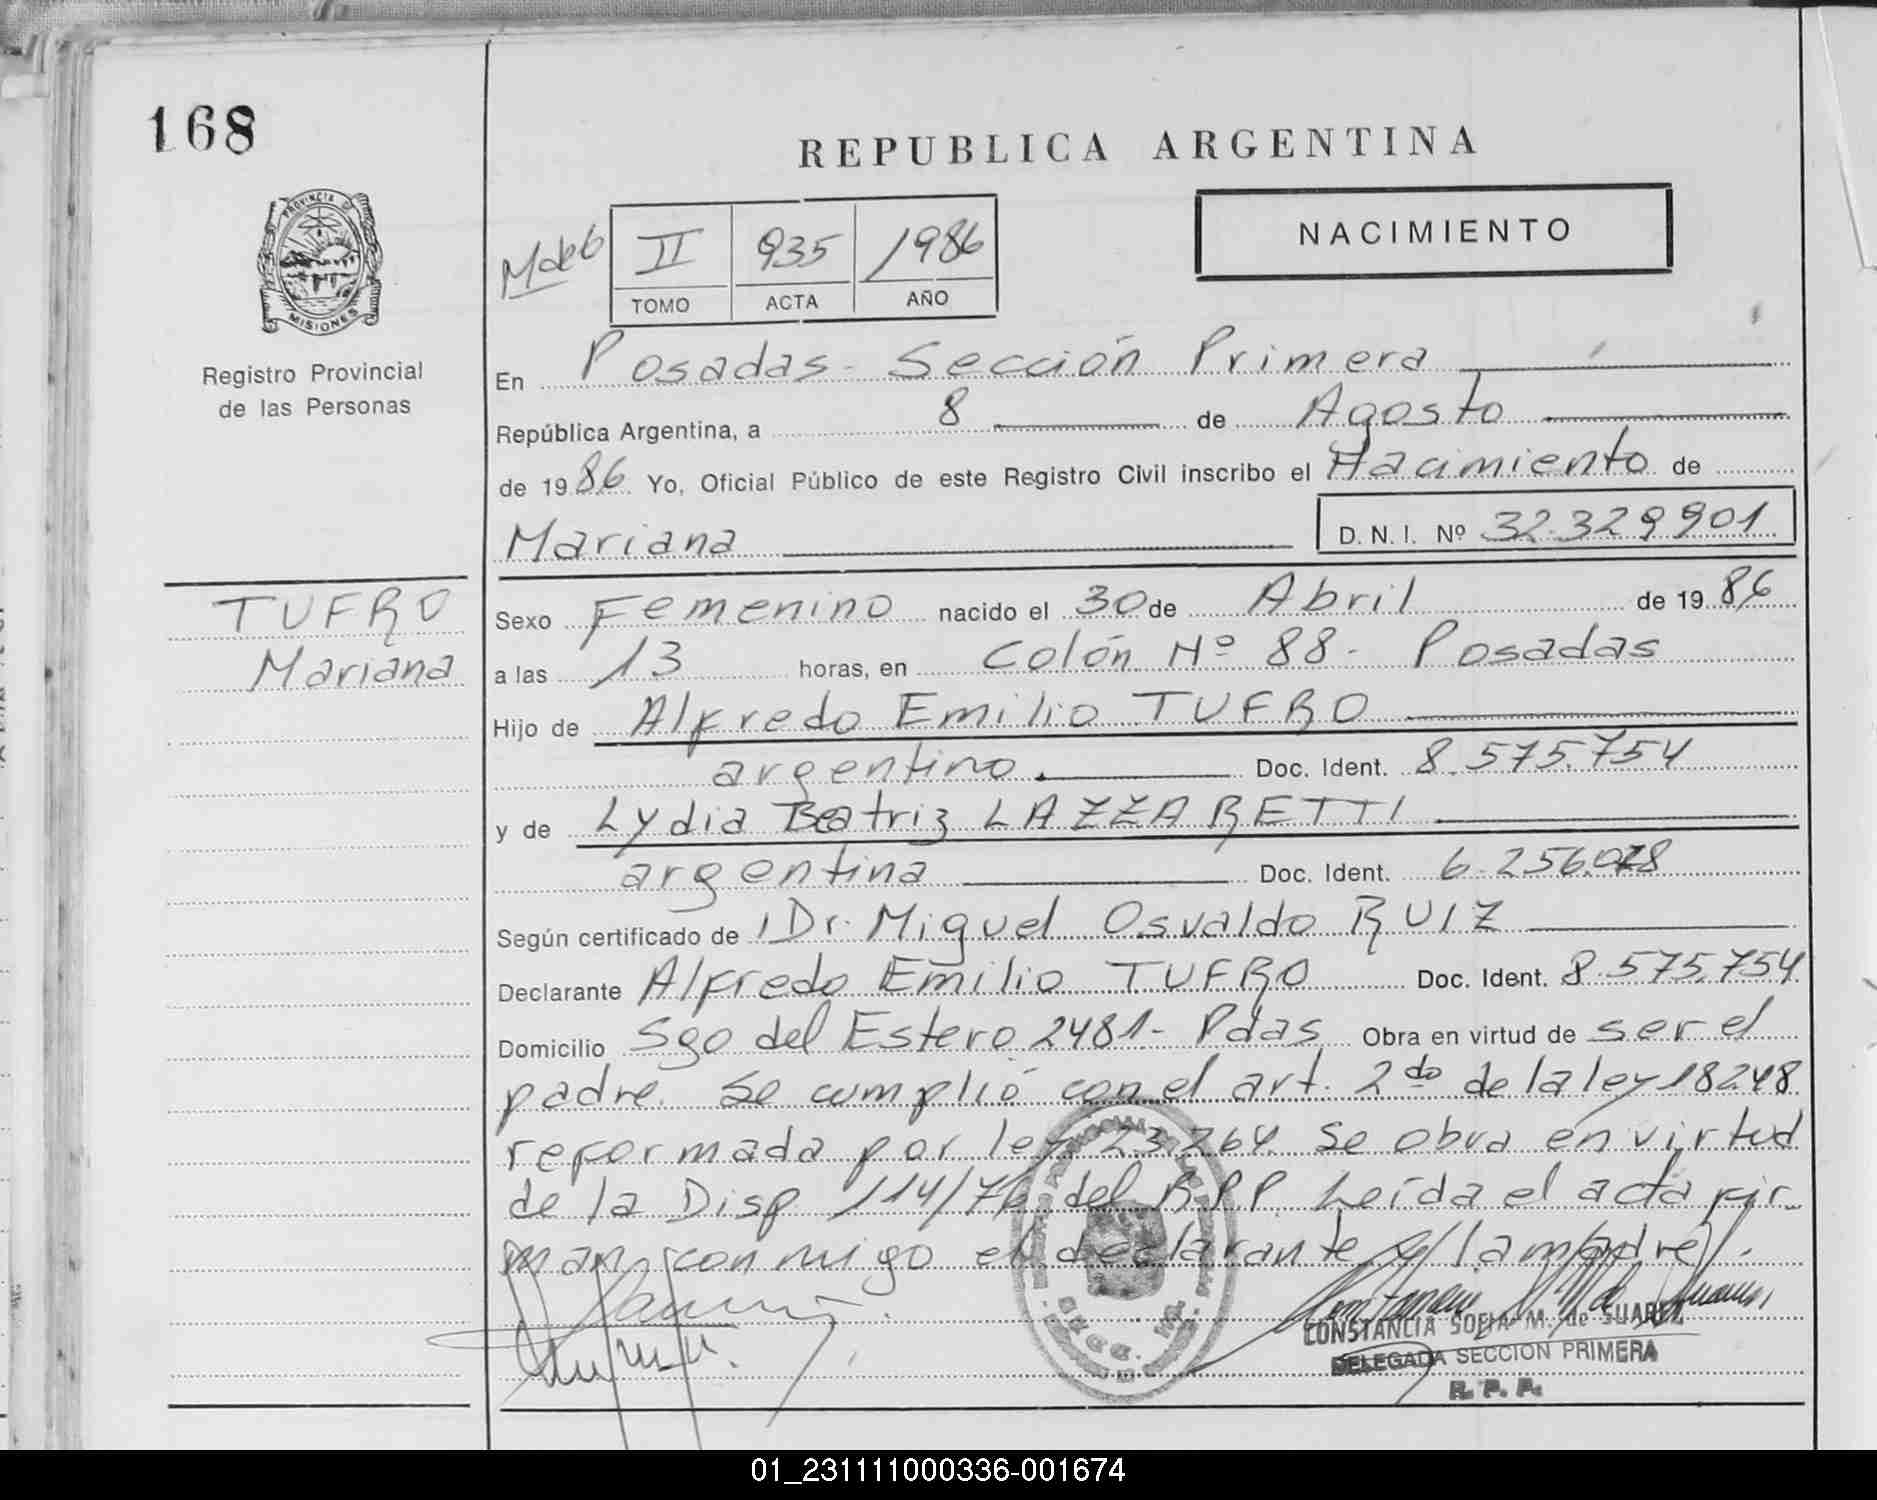 168
REPUBLICA ARGENTINA
NACIMIENTO
II 935 1986
TOMO ACTA AÑO
PROVINCIA D
MISIONES
Registro Provincial
de las Personas
En Posadas - Sección Primera
República Argentina, a 8 de Agosto
de 1986 Yo, Oficial Público de este Registro Civil inscribo el Nacimiento de
Mariana D. N. I. Nº 32.329.901
TUFRO
Mariana
Sexo Femenino nacido el 30 de Abril de 1986
a las 13 horas, en Colón Nº 88 - Posadas
Hijo de Alfredo Emilio TUFRO
argentino. Doc. Ident. 8.575.754
y de Lydia Beatriz LAZZARETTI
argentina Doc. Ident.
Según certificado de Dr. Miguel Osvaldo RUIZ
Declarante Alfredo Emilio TUFRO Doc. Ident. 8.575.754
Domicilio Sgo del Estero 2481 - Pdas Obra en virtud de ser el
padre. Se cumplió con el art. 2do de la ley 18248
reformada por ley 23.264. Se obra en virtud
de la Disp 114/76 del R.P.P. Leída el acta fir-
man conmigo el declarante y/ la m/padre/.
CONSTANCIA SOFIA M. de SUAREZ
DELEGADA SECCION PRIMERA
R. P. P.
01_231111000336-001674